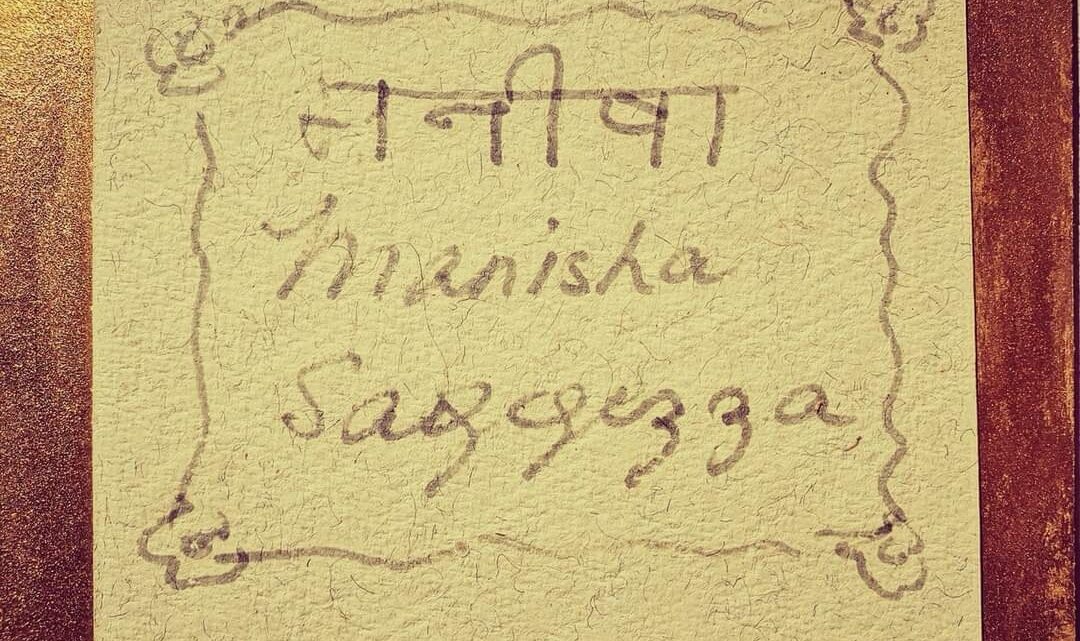 मनीषा
Manisha
Saggezza